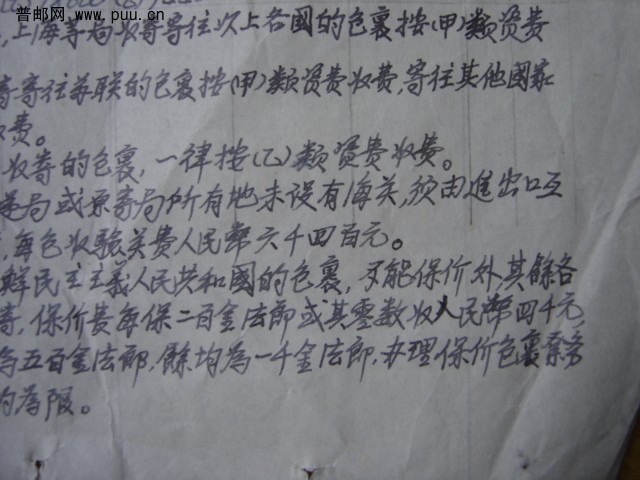 普邮网
www.puu.cn
,上海等局收寄寄往以上各國的包裹按(甲)類資費
寄往苏联的包裹按(甲)類資費收費,寄往其他國家
費。
收寄的包裹,一律按(乙)類資費收費。
局或原寄局所有地未设有海关,须由進出口互
,每包收驗关費人民幣六千四百元。
鮮民主主義人民共和國的包裹,不能保价外,其餘各
寄,保价費每保二百金法郎或其零数收人民幣四千元,
為五百金法郎,餘均為一千金法郎,办理保价包裹業务
為限。